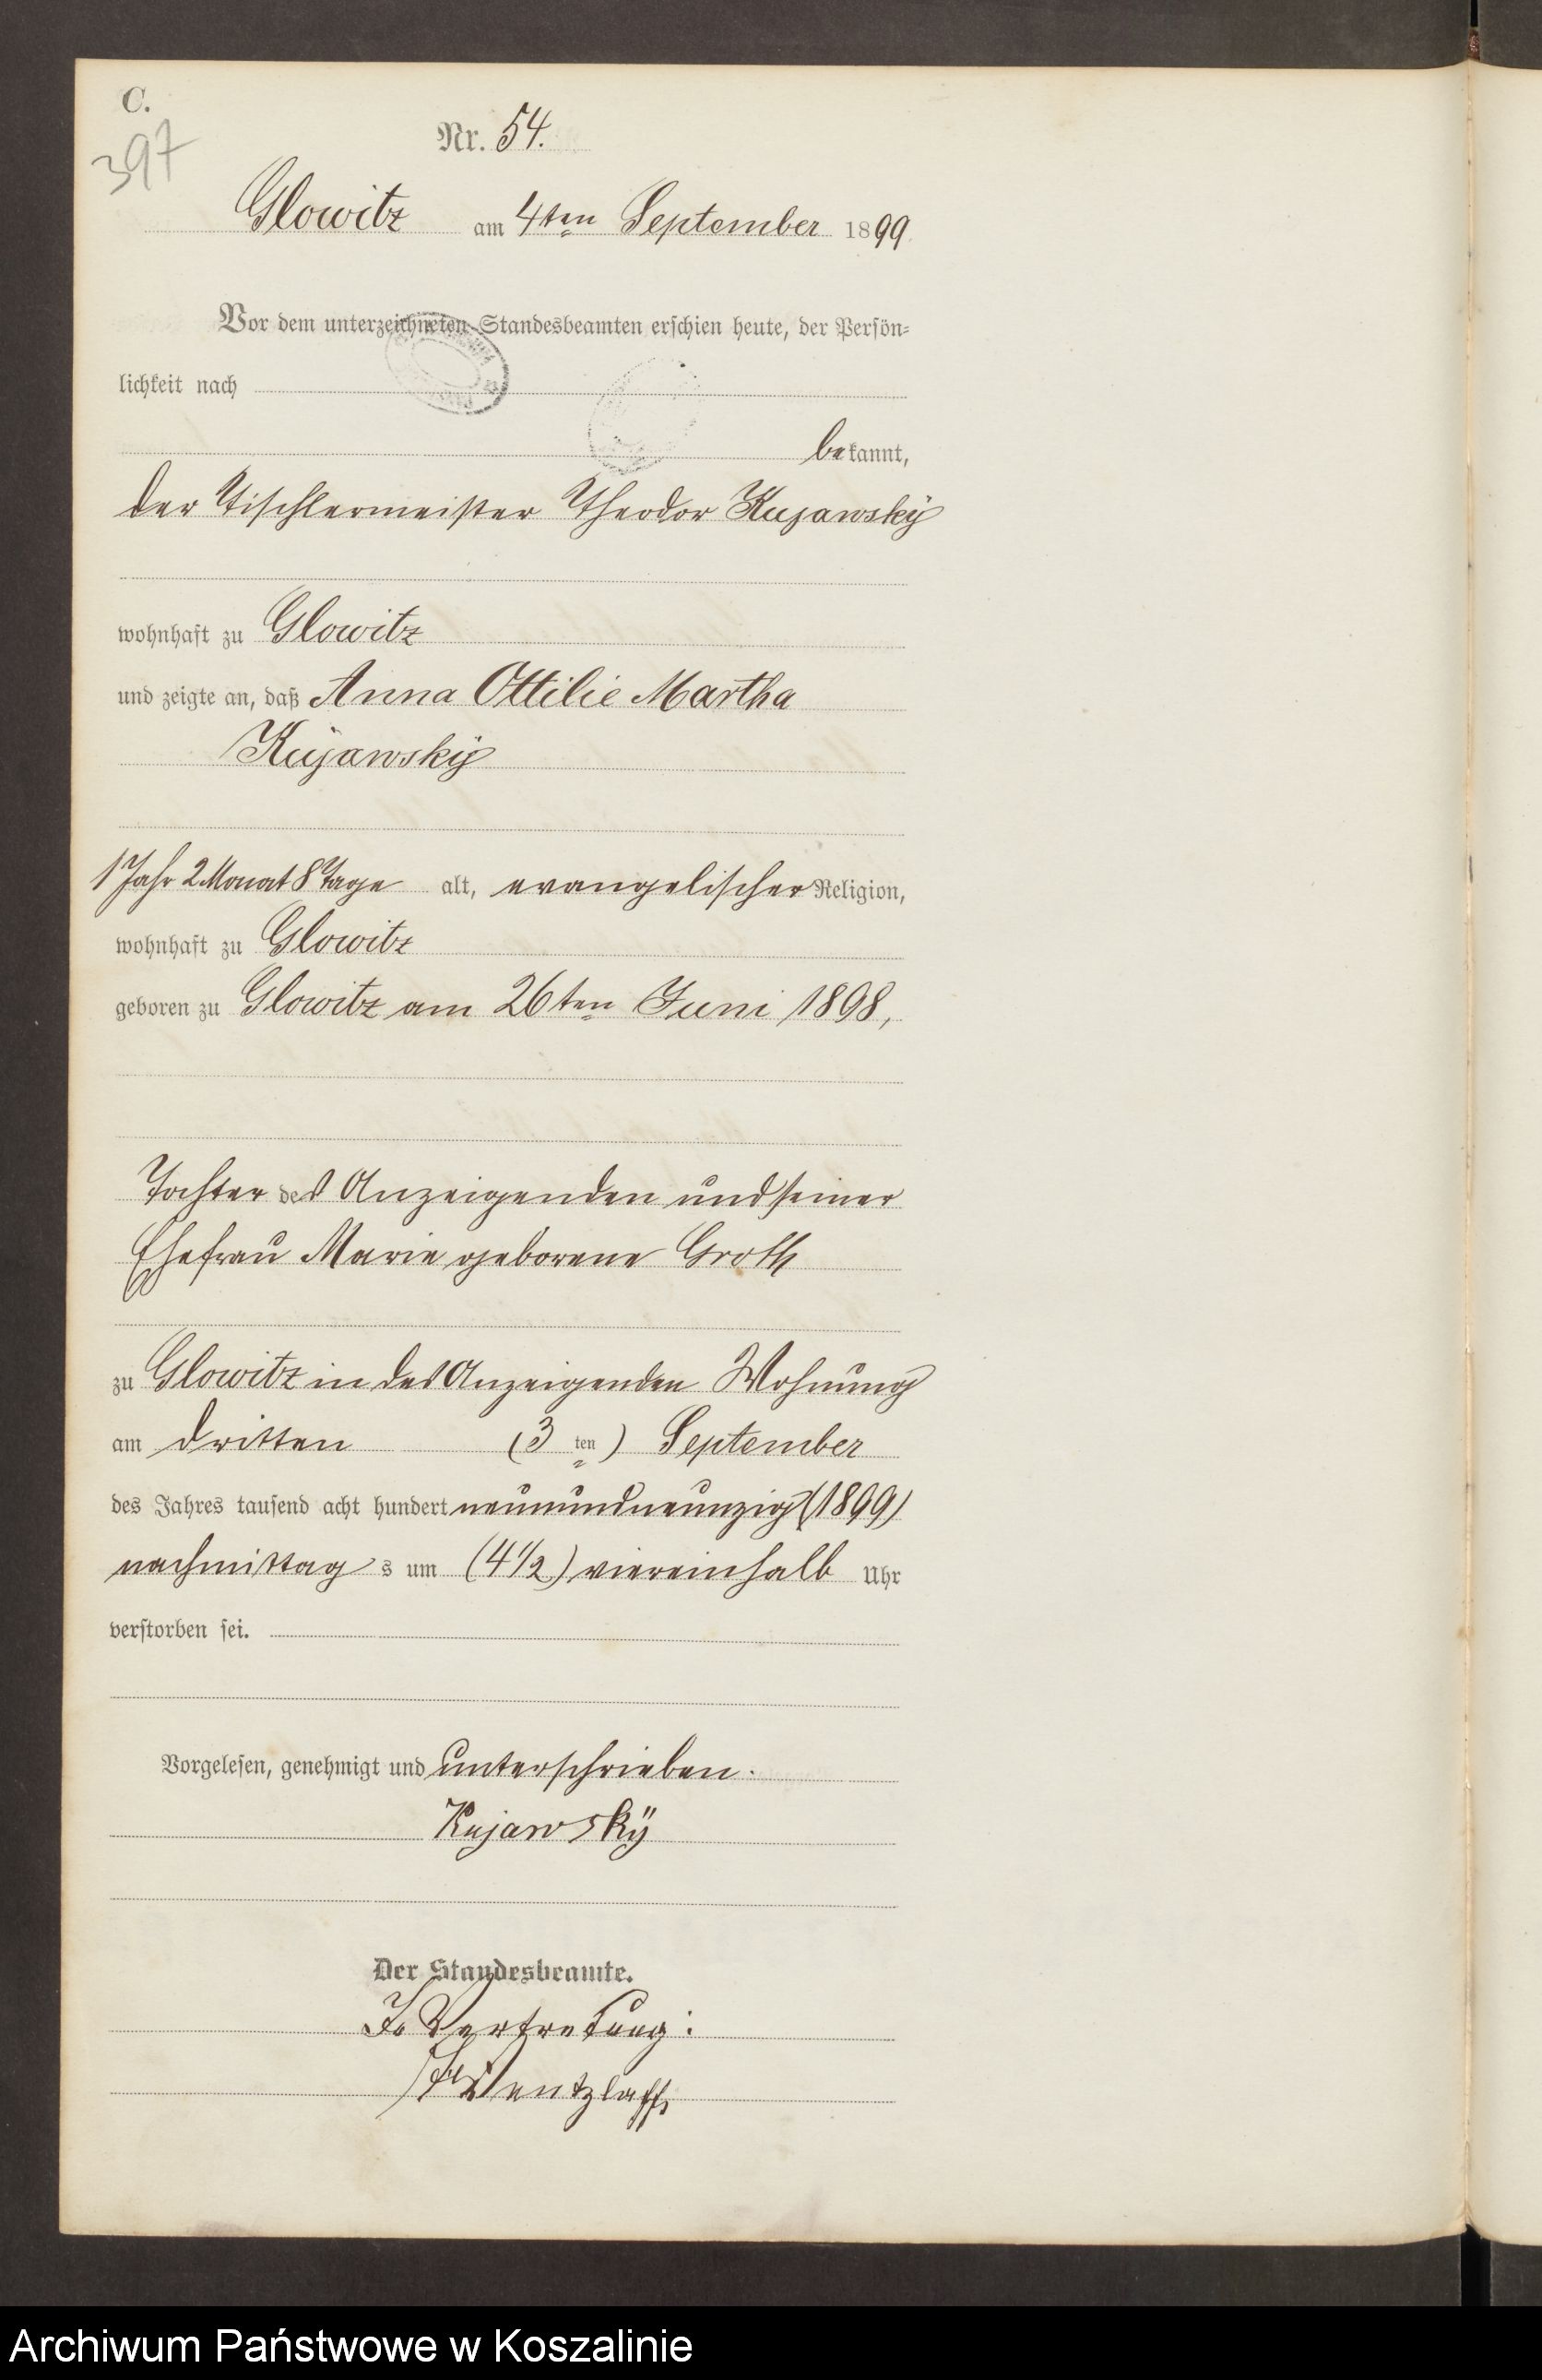 C.
397
Nr. 54.
Glowitz am 4ten September 1899
Vor dem unterzeichneten Standesbeamten erschien heute, der Persön=
lichkeit nach
bekannt,
der Tischlermeister Theodor Kujawsky
wohnhaft zu Glowitz
und zeigte an, daß Anna Ottilie Martha
Kujawsky
1 Jahr 2 Monat 8 Tage alt, evangelischer Religion,
wohnhaft zu Glowitz
geboren zu Glowitz am 26ten Juni 1898,
Tochter des Anzeigenden und seiner
Ehefrau Marie geborene Groth
zu Glowitz in des Anzeigenden Wohnung
am dritten (3 ten) September
des Jahres tausend acht hundert neunundneunzig (1899)
nachmittag s um (4 1/2) viereinhalb Uhr
verstorben sei.
Vorgelesen, genehmigt und unterschrieben.
Kujawskÿ
Der Standesbeamte.
In Vertretung:
Wentzlaff
Archiwum Państwowe w Koszalinie